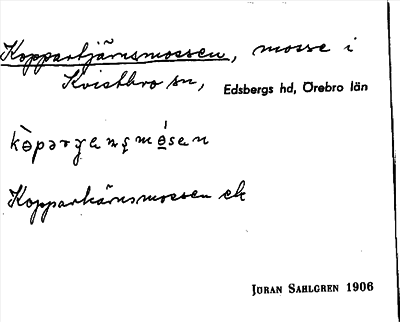 Koppartjärnsmossen, mosse i
Kvistbro sn, Edsbergs hd, Örebro län
Kopparkärnsmossen ek
JÖRAN SAHLGREN 1906